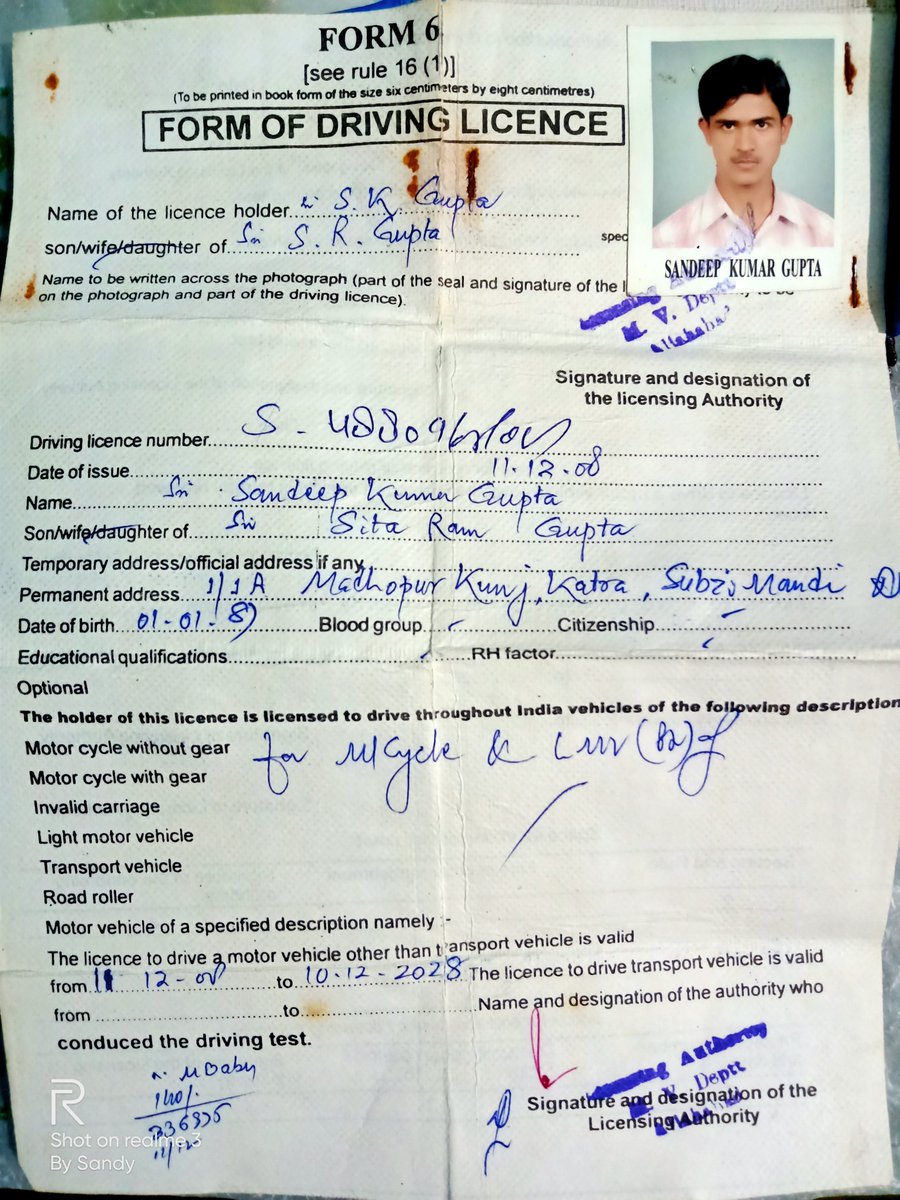 FORM 6
[see rule 16 (1)]
(To be printed in book form of the size six centimeters by eight centimetres)
FORM OF DRIVING LICENCE
Name of the licence holder...Sri S. K. Gupta
son/wife/daughter of. Sri S. R. Gupta
spec
Name to be written across the photograph (part of the seal and signature of the l
on the photograph and part of the driving licence).
SANDEEP KUMAR GUPTA
M. V. Deptt
Signature and designation of
the licensing Authority
Driving licence number... S -
Date of issue... 11.12.08
Name... Sri Sandeep Kumar Gupta
Son/wife/daughter of. Sri Sita Ram Gupta
Temporary address/official address if any
Permanent address 1/1A Madhopur Kunj, Katra, Subzi Mandi
Date of birth... 01-01-87 Blood group - Citizenship -
Educational qualifications... RH factor...
Optional
The holder of this licence is licensed to drive throughout India vehicles of the following description
Motor cycle without gear for M/Cycle & LMV
Motor cycle with gear
Invalid carriage
Light motor vehicle
Transport vehicle
Road roller
Motor vehicle of a specified description namely :-
The licence to drive a motor vehicle other than transport vehicle is valid
from 11 12-08 to 10-12-2028 The licence to drive transport vehicle is valid
from ... to... Name and designation of the authority who
conduced the driving test.
Licensing Authority
M. V. Deptt
Signature and designation of the
Licensing Authority
Shot on realme 3
By Sandy